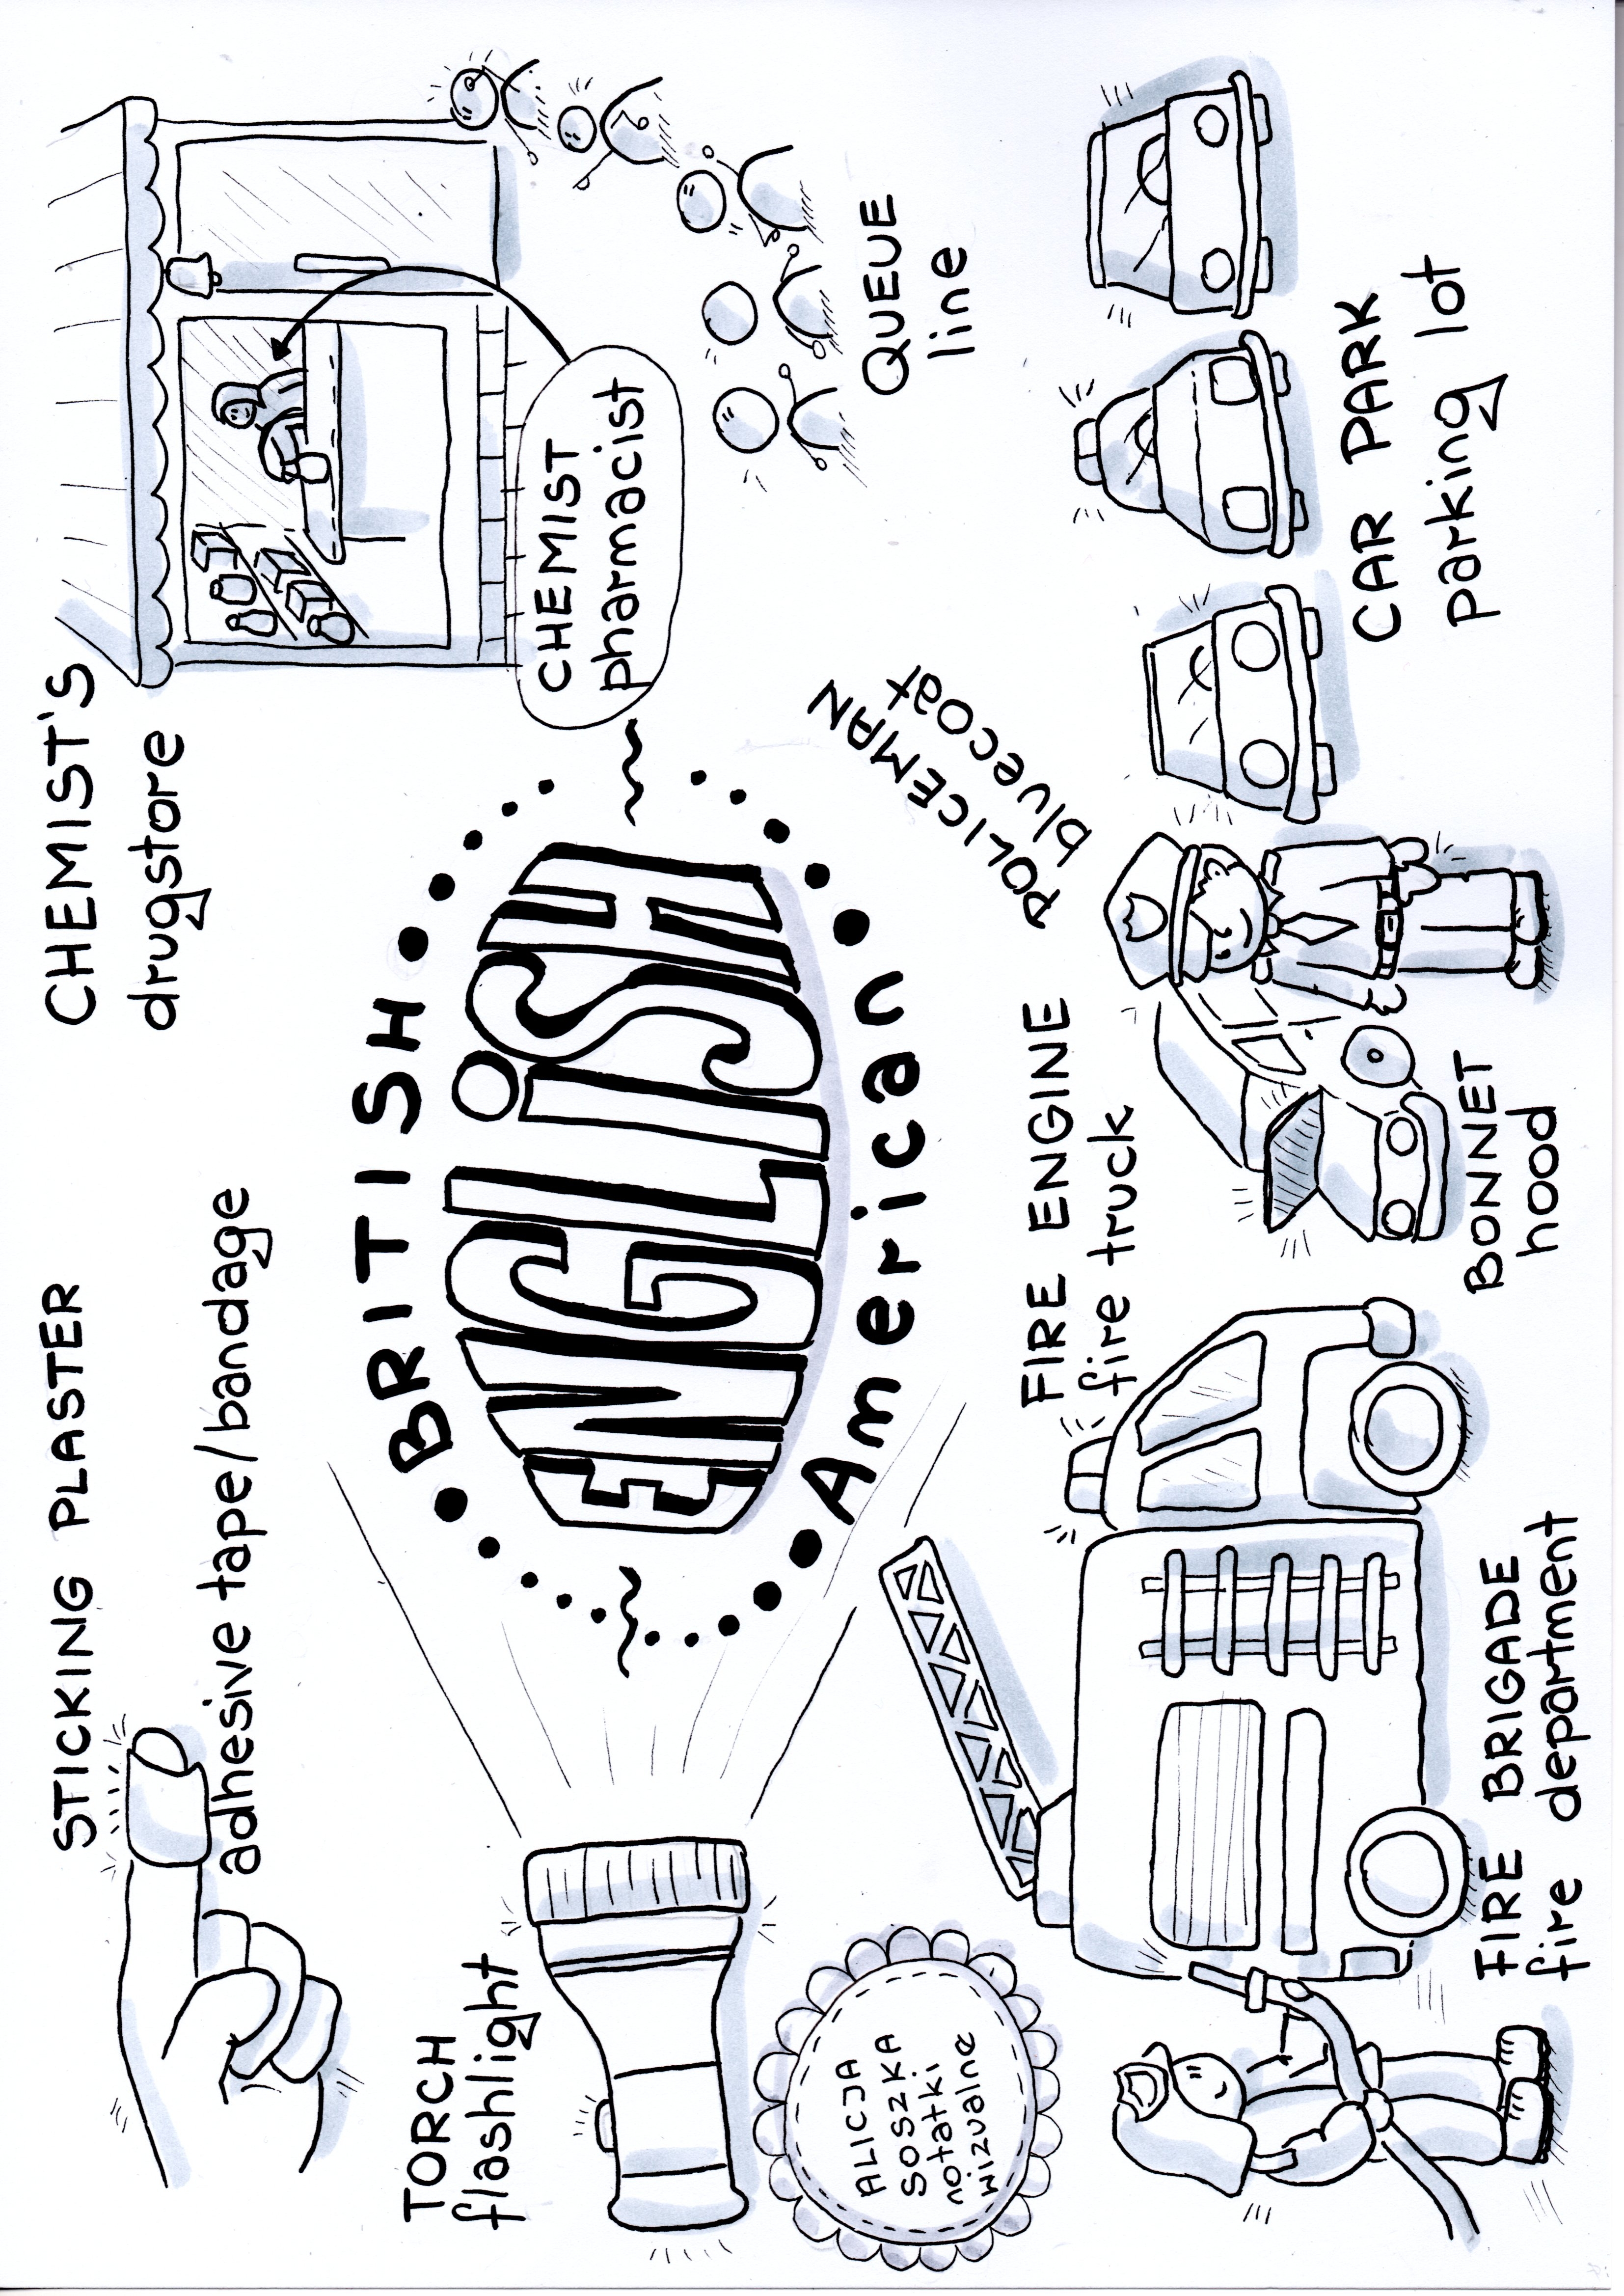 STICKING PLASTER
adhesive tape/bandage
CHEMIST'S
drugstore
TORCH
flashlight
BRITISH
ENGLiSH
American
CHEMIST
pharmacist
QUEUE
line
ALICJA
SOSZKA
notatki
wizualne
FIRE ENGINE
fire truck
POLICEMAN
bluecoat
CAR PARK
parking lot
BONNET
hood
FIRE BRIGADE
fire department